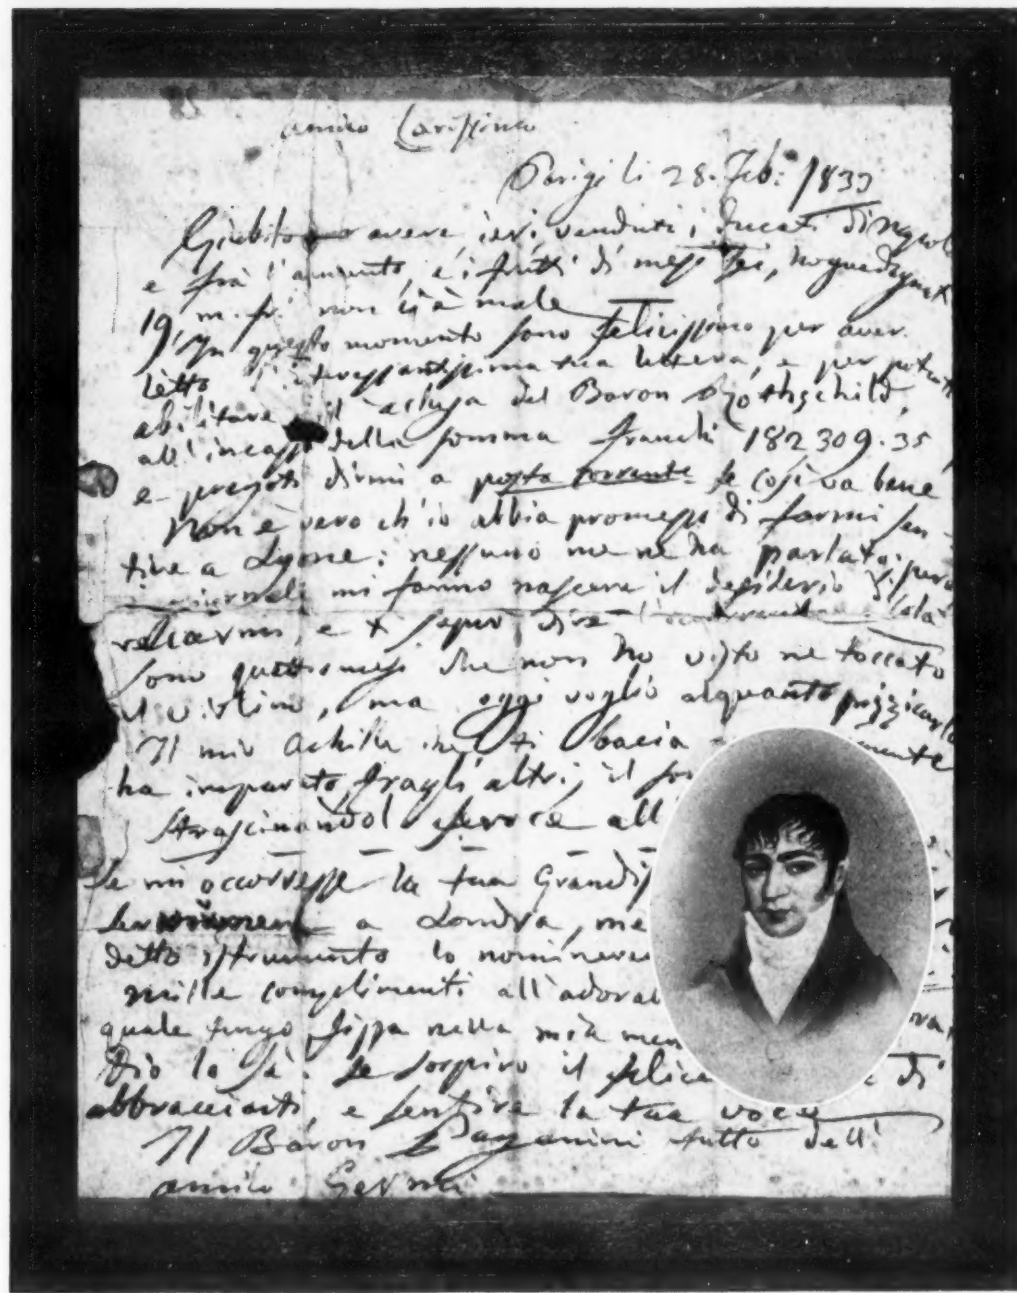 amico Carissimo
Parigi li 28. Feb: 1833
Giubito avere ieri venduti i ducati di
e frà l'aumento, e i frutti di mesi Tre, ho guadagnati
19/m. fr. non c'è male
In questo momento sono felicissimo per aver
letto l'interessantissima tua lettera, e per poter
abilitare il del Baron Rothschild,
all'incasso della somma franchi 182309.35
e pregoti dirmi a posta corrente se così va bene
Non è vero ch'io abbia promesso di farmi sen-
tire a Lyone: nessuno me ne ha parlato; però
i giornali mi fanno nascere il desiderio di colà
recarmi, e ti saprò dire
Sono quattro mesi che non ho visto ne toccato
il violino, ma oggi voglio alquanto pizzicarlo
Il mio Achille che ti bacia
ha imparato fragli altri; il
Strascinandol feroce all
Se mi occorresse la tua Grandis
a Londra, me
detto istrumento lo nominere
mille complimenti all'adorab
quale tengo fissa nella mia men
Dio lo sà. Se sospiro il felice di
abbracciarti, e sentire la tua voce
Il Baron Paganini tutto dell'
amico Germi